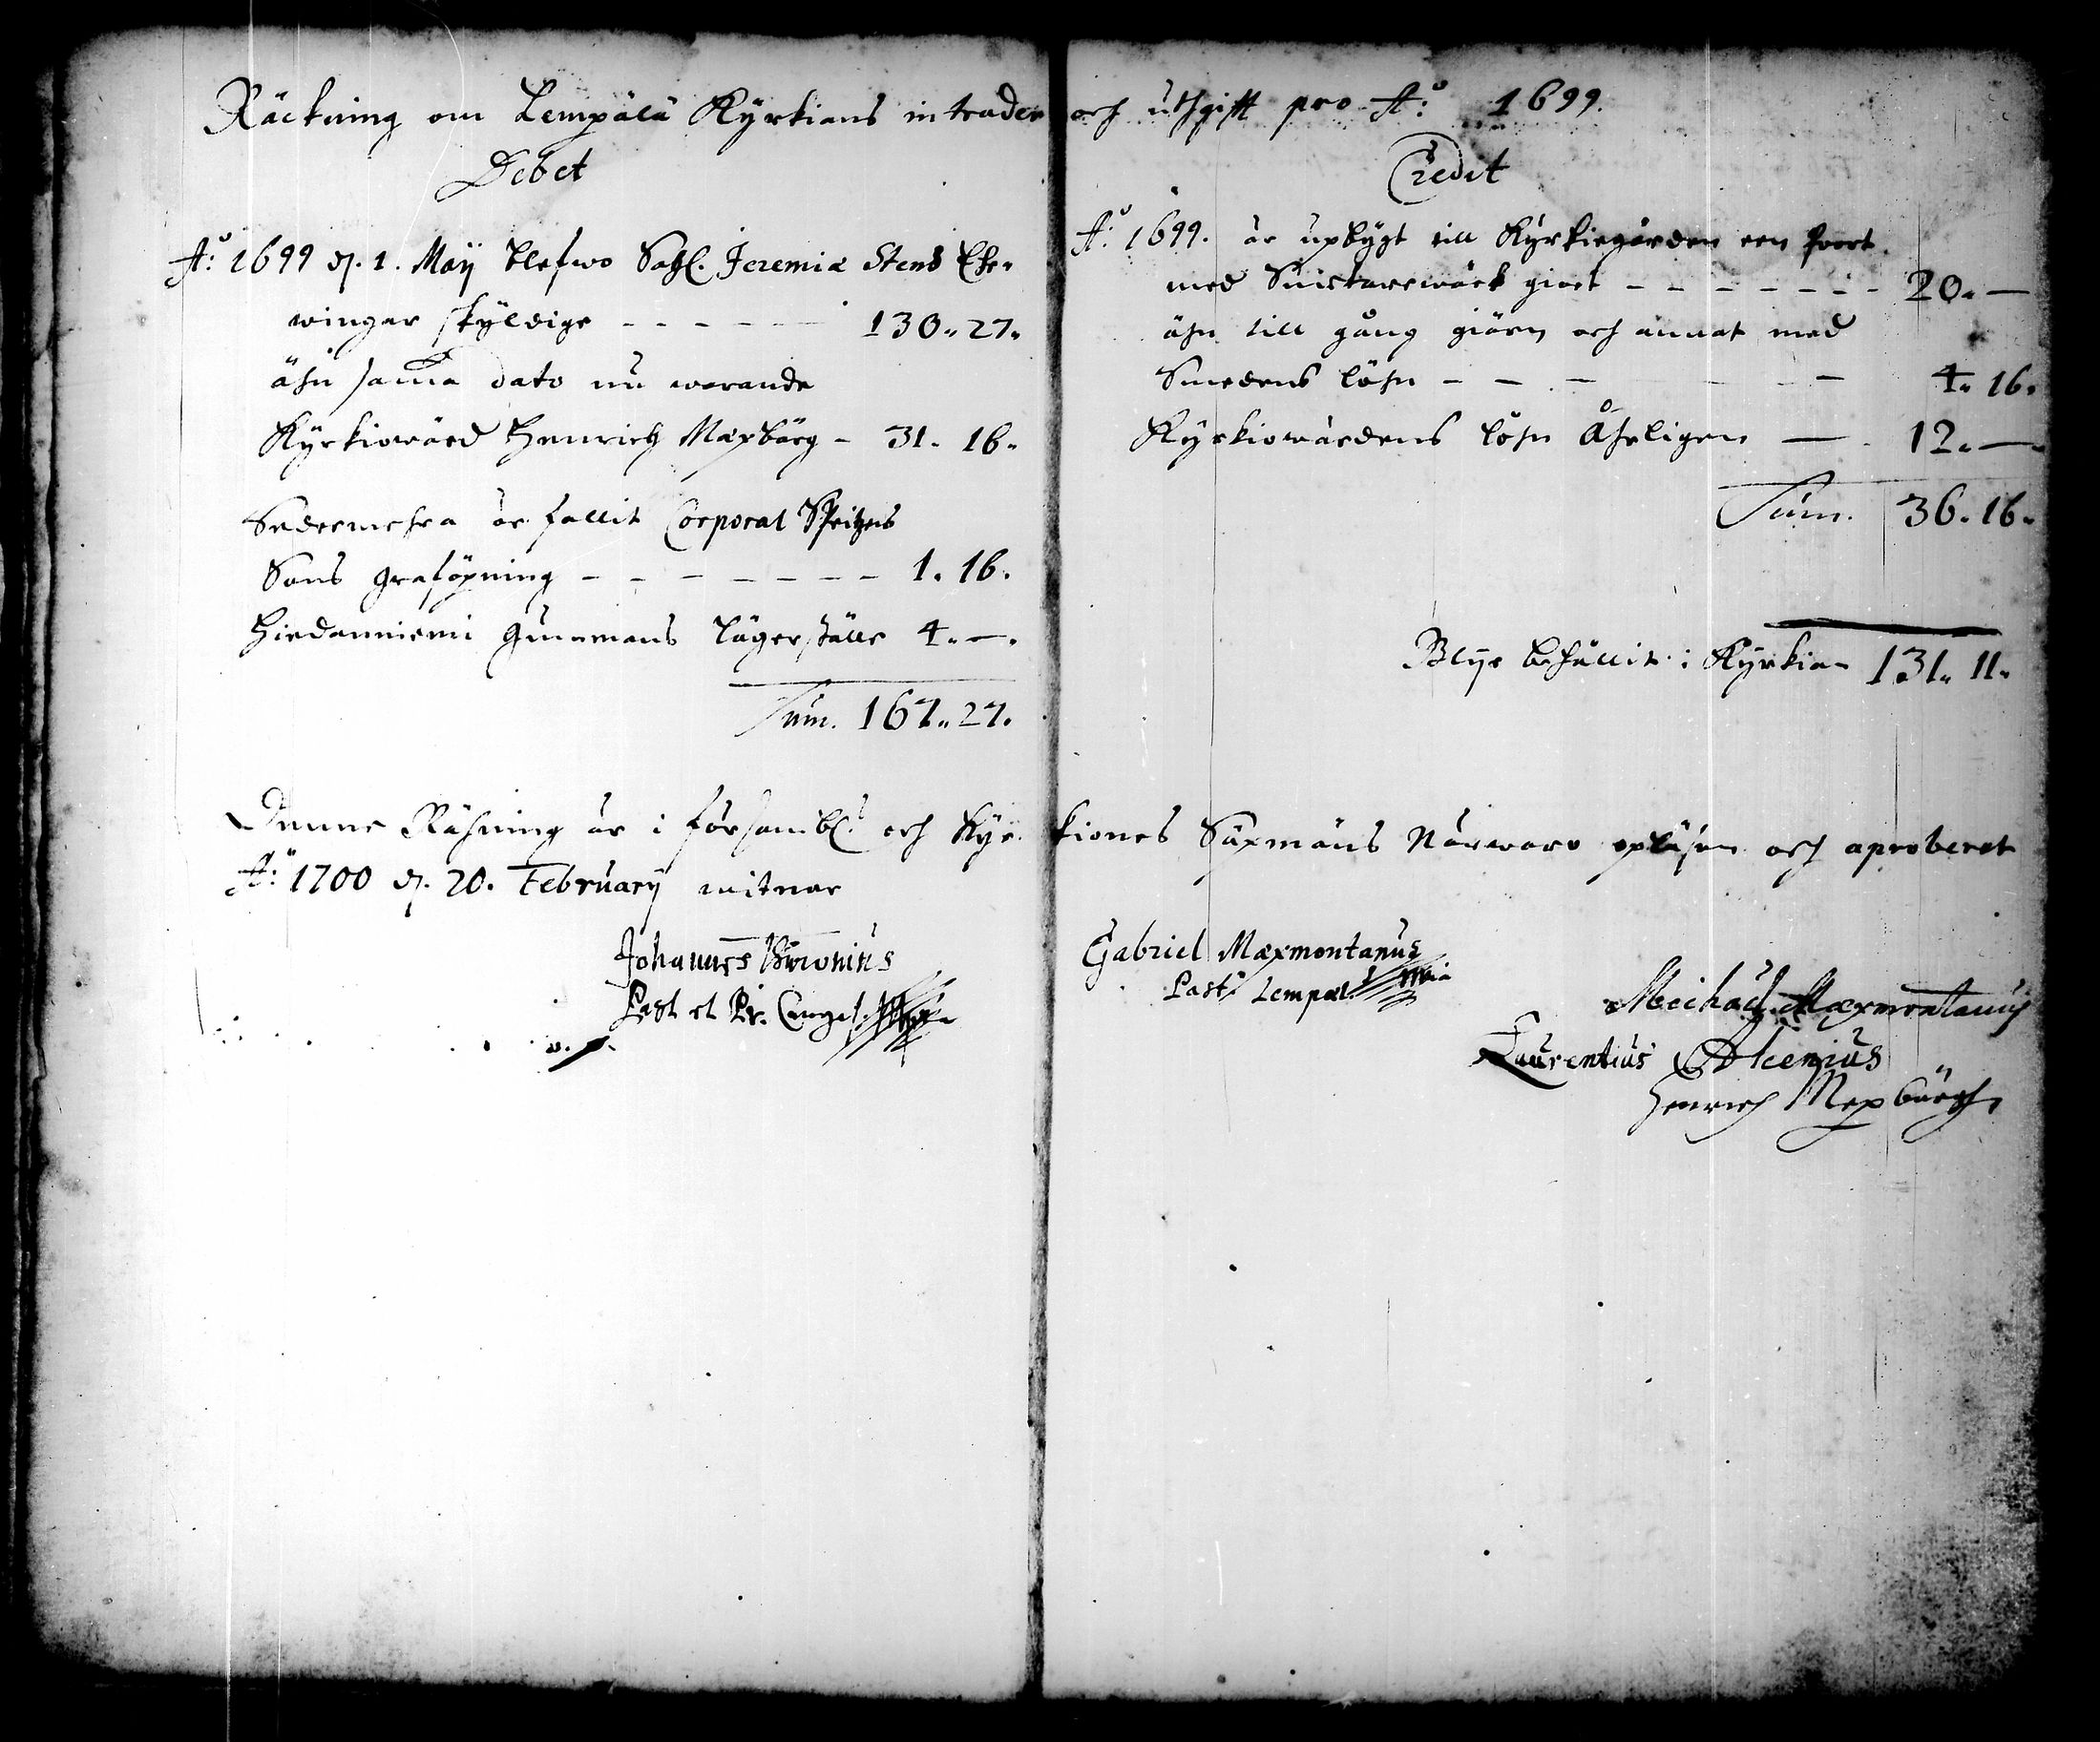 Räckning om Lempälä Kyrkians intrader och uthgifft pro Ao: 1699.
Debet
Ao: 1699 d. 1. Maÿ blefwo Sahl. Jeremiæ Stens Efter
wingar skyldige - - - - - - 130.. 27.
ähn sama dato nu warande
Kyrkiowärd Henrich Mexbärg - 31. 16.
Sedermehra är fallit Corporal Spitzens
Sons graföpning - - - - - - - 1. 16.
Hiedanniemi Gunnmans lägerställe 4. —.
Sum. 167.. 27.
Credit
Ao: 1699. är upbygt till Kyrkiegården een poort
med Snickarewärck giort - - - - - - - 20. —
ähn till gång giärn och annat med
Smedens löhn - - - - - 4. 16.
Kyrkiowärdens löhn Åhrligen — 12. —
Sum. 36. 16.
Blijr behållit i Kyrkian 131. 11.
Denne Räkning är i försambl. och Kyrkiones Säxmäns Närwaro opläsen och aproberat
Ao: 1700 d. 20. February witnar
Johannes
Past et Pr. Cangas.
Gabriel Mæxmontanus
Past. Lempæl. mpia
Meichael Mæxmontanus
Laurentius
Henrich Mexbärgh